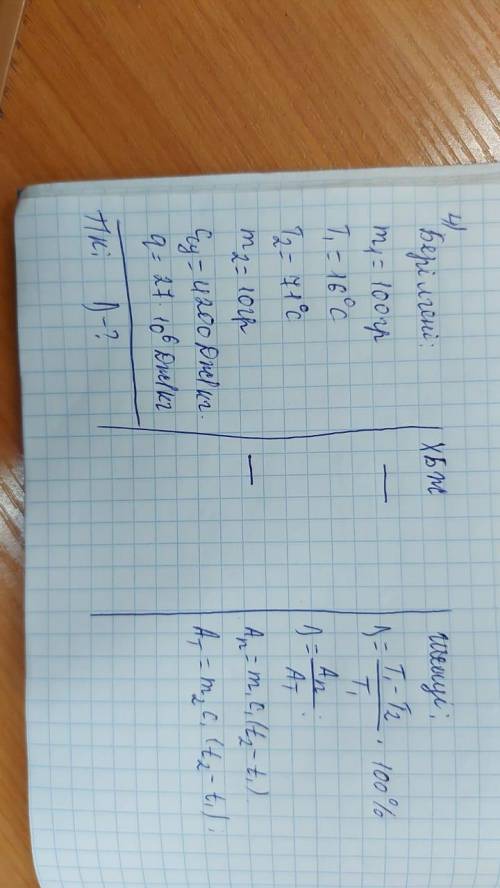 4) Берілгені:
m₁ = 100гр
T₁ = 16°C
T₂ = 71°C
m₂ = 10гр
= 4200 Дж/кг.
q = 27·10⁶ Дж/кг
Т/кі η - ?
ХБЖ
—
—
Шешуі:
η = (T₁ - T₂)/T₁ · 100%
η = Aп/Aт.
Aп = m₁c₁(t₂ - t₁).
Aт = m₂c₁(t₂ - t₁).